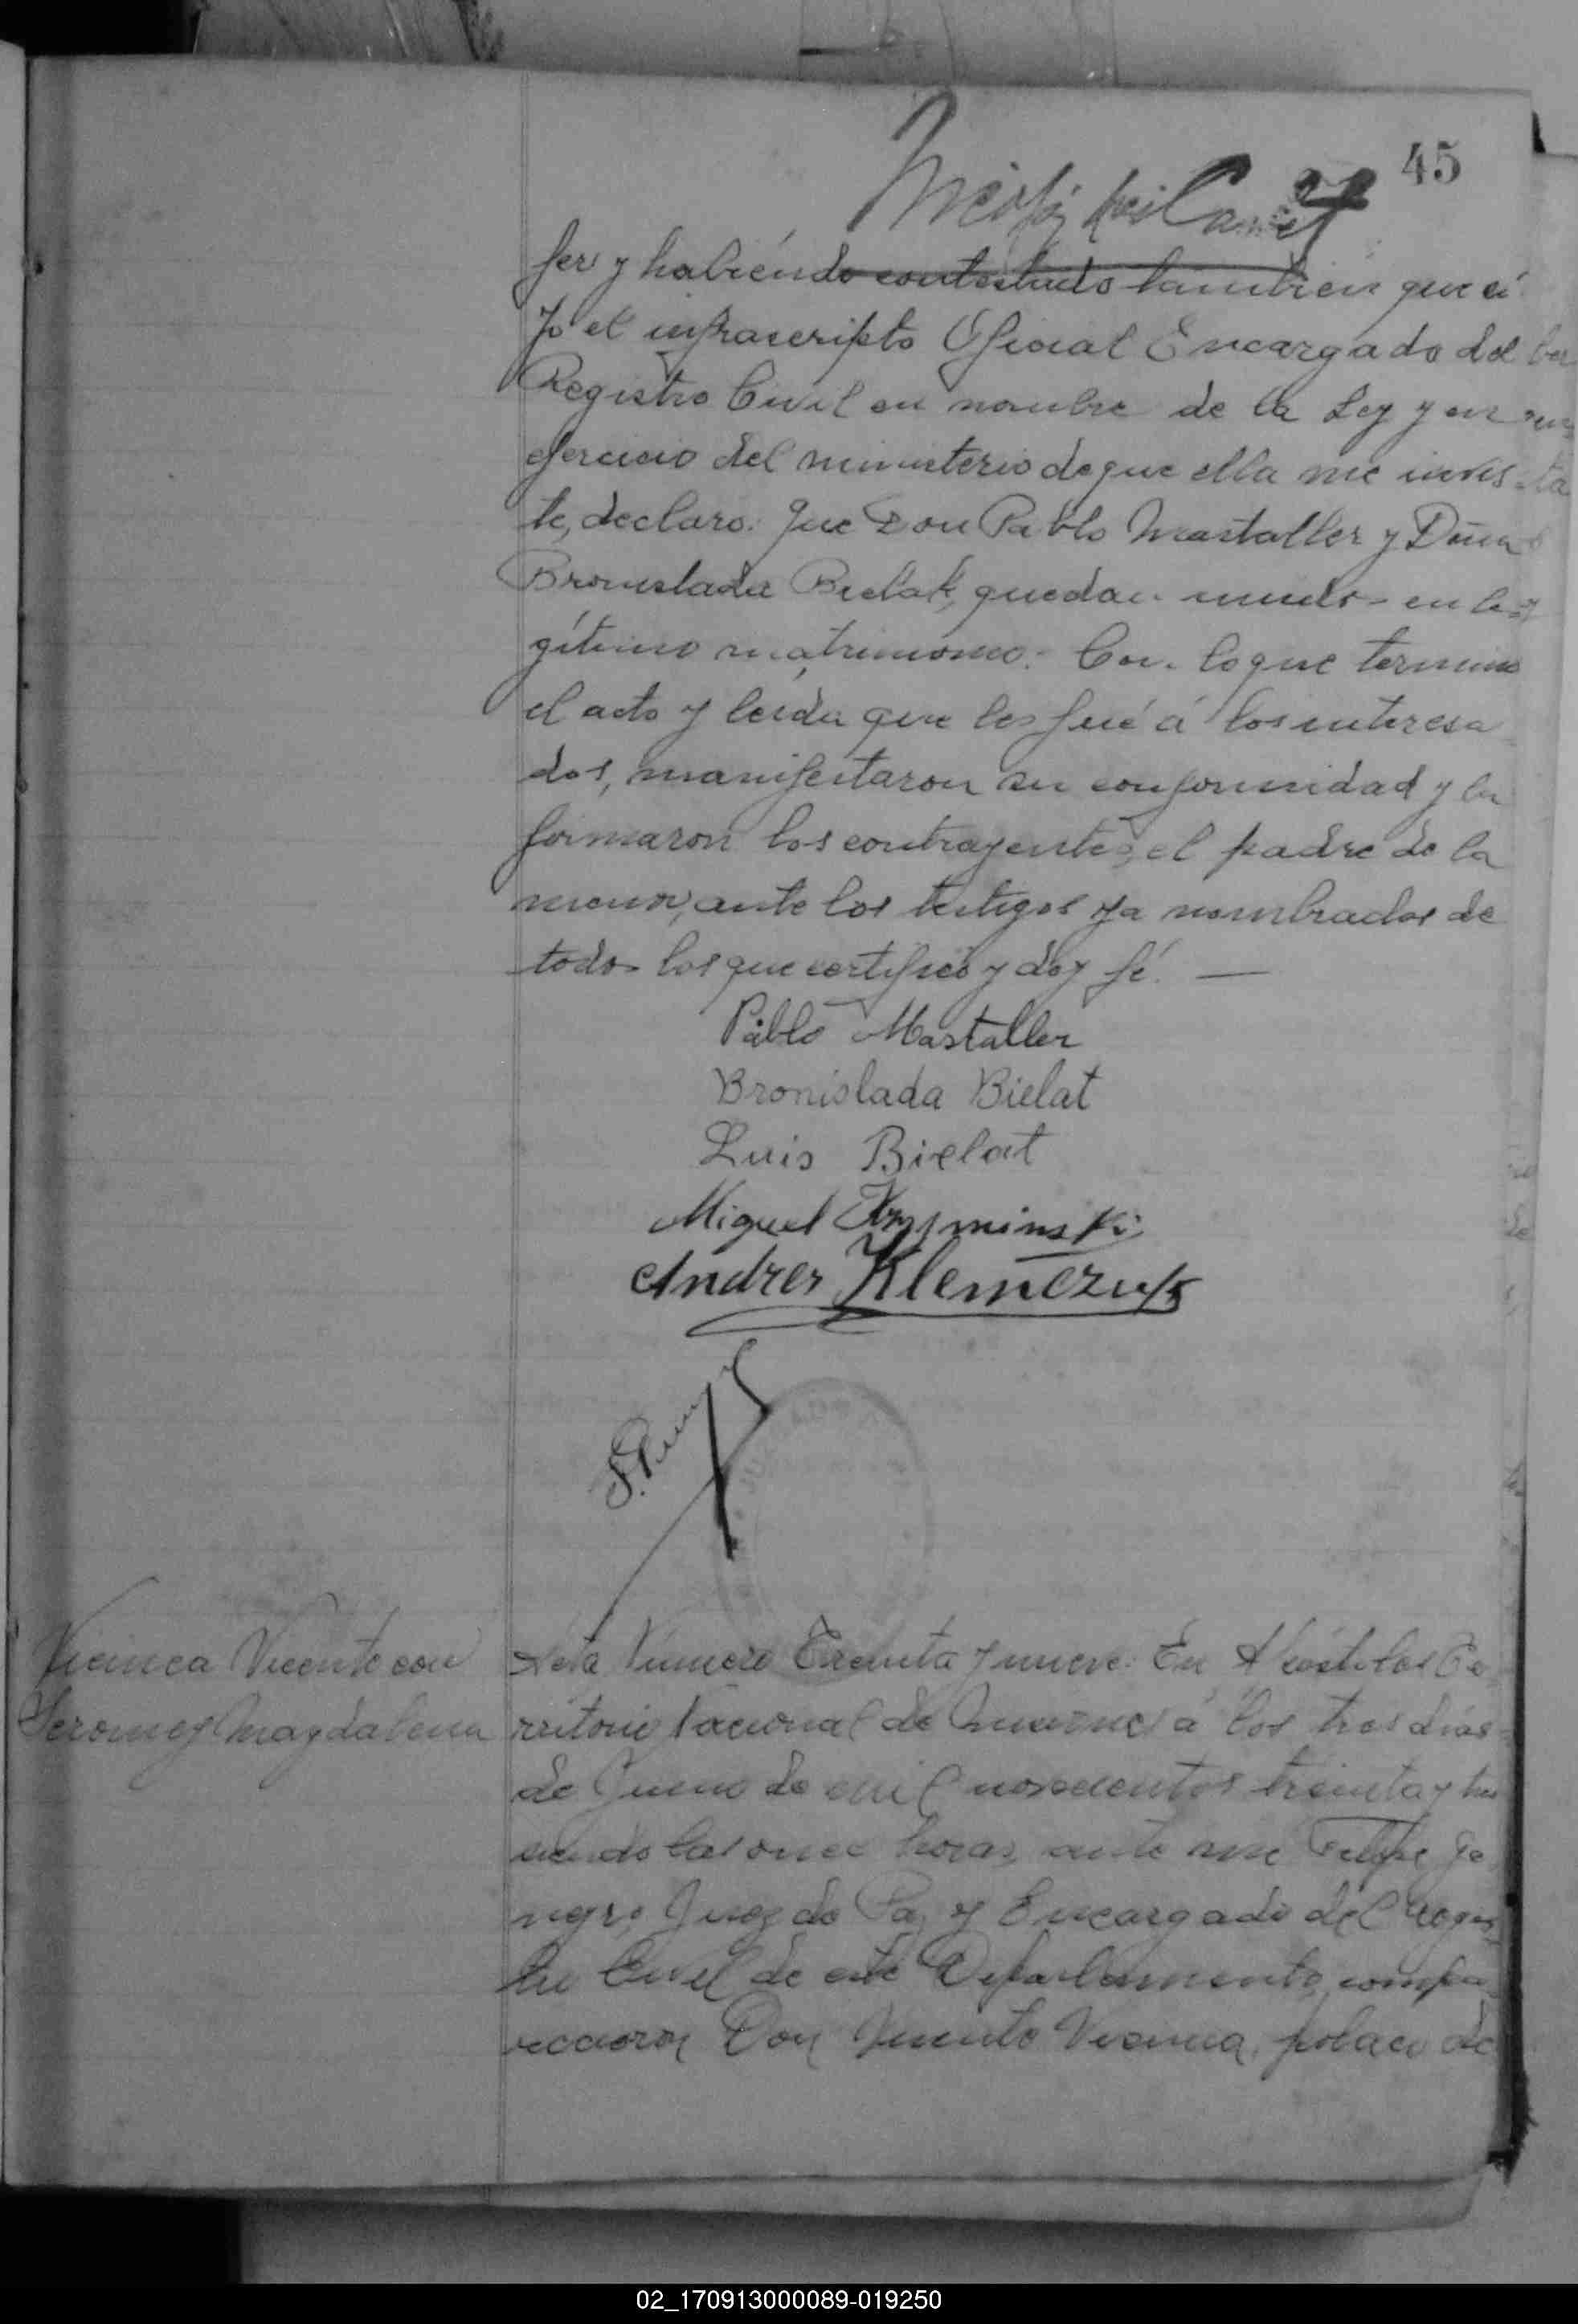 45
fer y habiendo contestado tambien que si
Yo el infrascripto Oficial Encargado del
Registro Civil en nombre de la Ley y en
ejercicio del ministerio de que ella me invis-
te, declaro: Que Don Pablo Mastaller y Doña
Bronislada Bielak, quedan unidos en le-
gítimo matrimonio. Con lo que termino
el acto y leida que les fué á los interesa
dos, manifestaron su conformidad y la
formaron los contrayentes, el padre de la
menor, ante los testigos ya nombrados de
todos los que certifico y doy fé. —
Pablo Mastaller
Bronislada Bielat
Luis Bielat
Miguel
Andres Klemczuk
Vicente con
Magdalena
Acta Número Treinta y nueve. En Apóstoles Te-
rritorio Nacional de Misiones á los tres dias
de Junio de mil novecientos treinta y tres
siendo las once horas, ante mi Felipe
Juez de Paz y Encargado del Regis-
tro Civil de este Departamento, compa
recieron Don Vicente polaco de
02_170913000089-019250